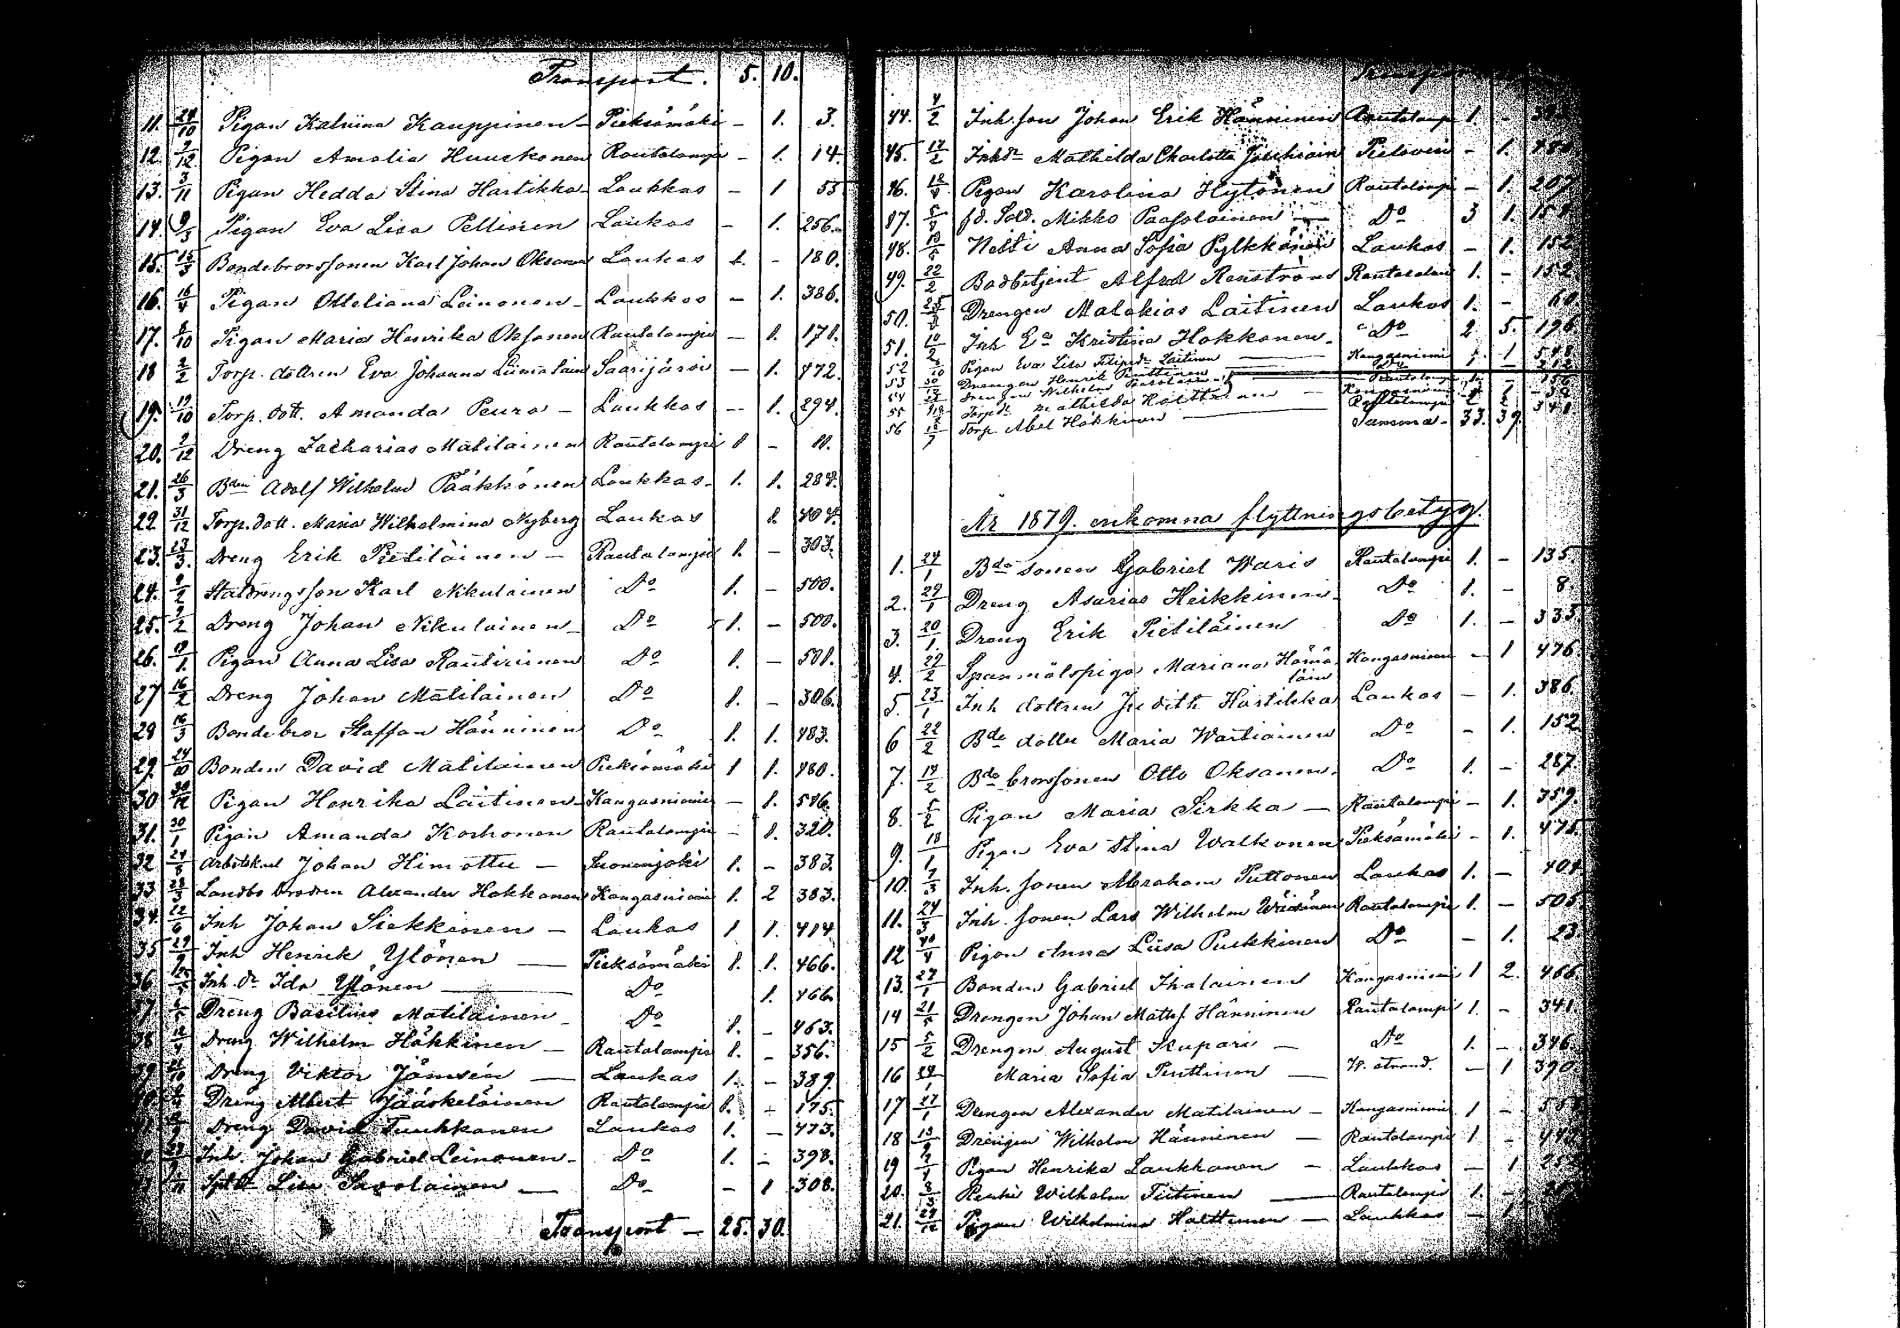 Transport. 5. 10.
11. 24/10 Pigan Katriina Kauppinen - Pieksämäki - 1. 3.
12. 9/12 Pigan Amalia Huuskonen Rautalampi - 1. 14.
13. 3/11 Pigan Hedda Stina Hartikka Laukkas - 1 55
14. 9/3 Pigan Eva Lisa Pellinen Laukas - 1. 256.
15. 15/3 Bondebrorssonen Karl Johan Oksanen Laukas 1. - 180.
16. 16/4 Pigan Otteliana Leinonen - Laukkas - 1. 386.
17. 6/10 Pigan Maria Henrika Oksanen Rautalampi - 1. 171.
18 2/2 Torp. dottren Eva Johanna Liimatain Saarijärvi - 1. 472.
19. 19/10 Torp. dott. Amanda Peura - Laukkas - 1. 294.
20. 9/12 Dreng Zacharias Matilainen Rautalampi 1 - 11.
21. 26/3 Bden Adolf Wilhelm Pääkkönen Laukkas. 1. 1. 284.
22 31/12 Torp. dott. Maria Wilhelmina Nyberg Laukas 1. 404.
23. 23/3. Dreng Erik Pietiläinen - Rautalampi 1. - 303.
24. Staldrengsson Karl Nikulainen Do 1. - 500.
25. 9/2 Dreng Johan Nikulainen - Do 1. - 500.
26. Pigan Anna Lisa Rautiainen Do 1. - 501.
27 16/2 Dreng Johan Matilainen Do 1. - 306.
28 16/3 Bondebror Staffan Hänninen Do 1. 1. 483.
29. 24/10 Bonden David Matilainen Pieksämäki 1 1. 480.
30 30/12 Pigan Henrika Laitinen - Kangasniemi - 1. 546.
31. 30/1 Pigan Amanda Korhonen Rautalampi - 1. 320.
32 Arbetskarl Johan Himottu - Suonenjoki 1. - 383.
33 Landbo brodren Alexander Hokkanen Kangasniemi 1. 2 383.
34. 22/6 Inh Johan Siekkinen - Laukas 1 1. 414
35 Inh Henrik Ylönen - Pieksämäki 1. 1. 466.
36 Inh. dr Ida Ylönen Do 1. 466
37 Dreng Basilius Matilainen - Do 1. - 463.
38 12/4 Dreng Wilhelm Häkkinen - Rautalampi 1. - 356.
39 Dreng Viktor Jämsén - Laukas 1. - 389.
Dreng Albert Jääskeläinen Rautalampi 1. - 175.
Dreng David Tuukkanen Laukas 1. - 473.
Inh. Johan Gabriel Leinonen - Do 1. - 398.
Lisa Savolainen - Do - 1 308.
Transport - 25. 30.
Transport
44. 4/2 Inh. son Johan Erik Hänninen Rautalampi 1. -
45. 17/2 Inh dr Mathilda Charlotta Pielavesi - 1.
46. 18/4 Pigan Karolina Hytönen Rautalampi - 1. 207
47. fd. Sold. Mikko Paasolainen - Do 3 1.
48. Anna Sofia Pylkkänen Laukas - 1. 152
49. 22/2 Alfred Renström Rautalampi 1. - 152
50. Drengen Malakias Laitinen Laukas 1. - 60
51. 10/2 Inh Ea Kristina Hokkanen - Do 2 5. 196
52 Pigan Eva Lisa Laitinen - Kangasniemi - 1
53 Drengen Henrik Penttinen Do 1 -
54 Drengen Wilhelm Rautalampi 1 -
55 Torp dr Mathilda - Kangasniemi
56 Torp. Abel Häkkinen Rautalampi
Summa - 33. 39.
År 1879. inkomna flyttningsbetyg.
1. 24/1 Bde sonen Gabriel Waris Rautalampi 1. - 135
2. 29/1 Dreng Asarias Heikkinen - Do 1. - 8
3. 20/1. Dreng Erik Pietiläinen Do 1. - 333
4. 22/2 Spanmålspiga Mariana Hämäläin Kangasniemi - 1 476
5. 23/1 Inh dottren Judith Hartikka Laukas - 1. 386
6 22/2 Bde dotter Maria Wartiainen Do - 1. 152
7. 14/2 Bde brorssonen Otto Oksanen. Do 1. - 287.
8. 5/2 Pigan Maria Sirkka - Rautalampi - 1. 359.
9. 18/1 Pigan Eva Stina Walkonen Pieksämäki - 1. 475
10. 7/3 Inh. sonen Abraham Puttonen Laukas 1. - 404
11. 24/3 Inh. sonen Lars Wilhelm Wäisänen Rautalampi 1. - 505
12 Pigan Anna Liisa Puikkinen Do - 1. 23
13. 27/1 Bonden Gabriel Ikalainen Kangasniemi 1 2. 466
14 21/5 Drengen Johan Mattss. Hänninen Rautalampi 1. - 341.
15 5/2 Drengen August Kupari - Do 1. - 346
16 Maria Sofia Penttinen - - 1 390
17 27/1 Drengen Alexander Matilainen - Kangasniemi 1 -
18 Drengen Wilhelm Hänninen - Rautalampi 1 -
19 Pigan Henrika Laukkanen - Laukkas - 1
20. 8/3 Wilhelm Tiitinen - Rautalampi 1. -
21. 29/12 Pigan Wilhelmina Halttunen - Laukkas - 1